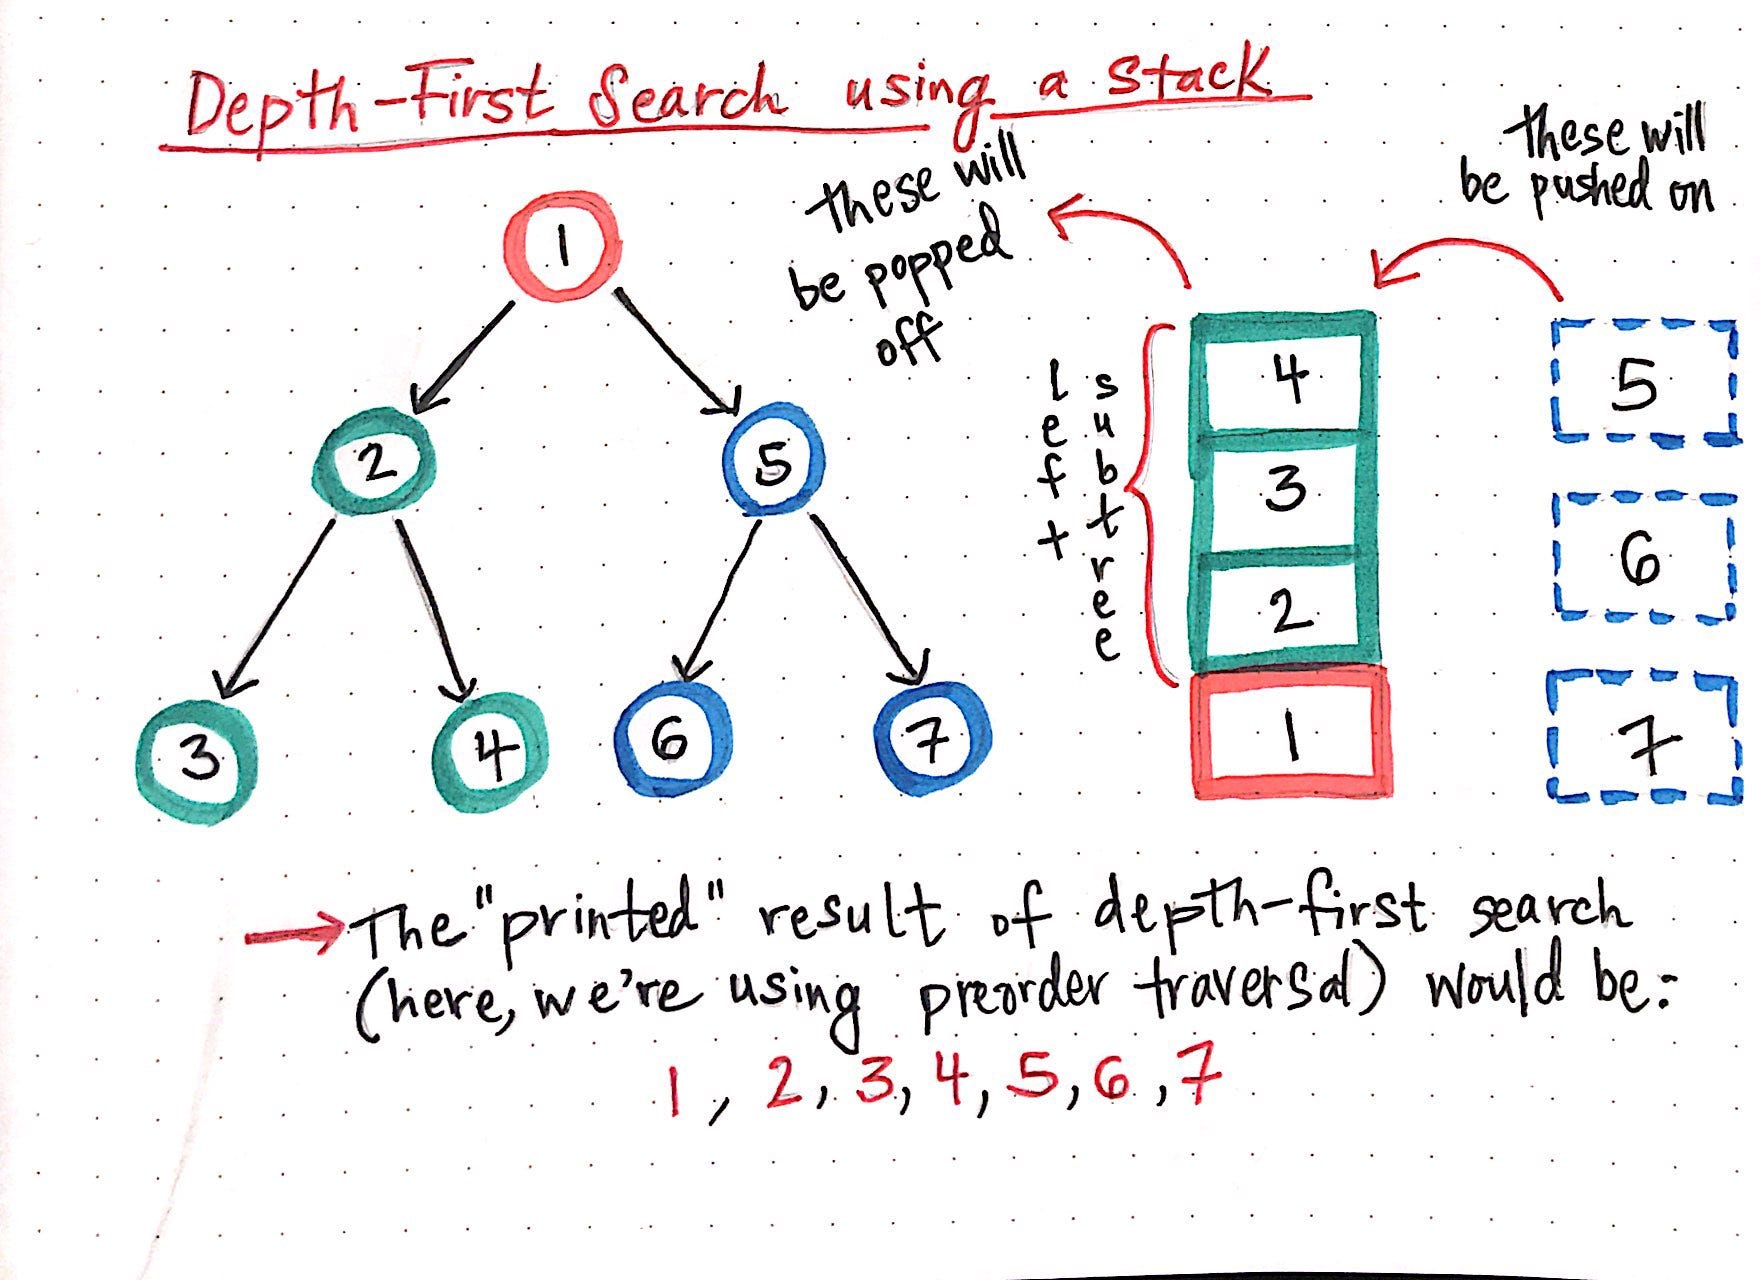 Depth-First Search using a stack
these will
be popped
off
these will
be pushed on
1
2
5
3
4
6
7
left subtree
4
3
2
1
5
6
7
→ The "printed" result of depth-first search
(here, we're using preorder traversal) would be:
1, 2, 3, 4, 5, 6, 7